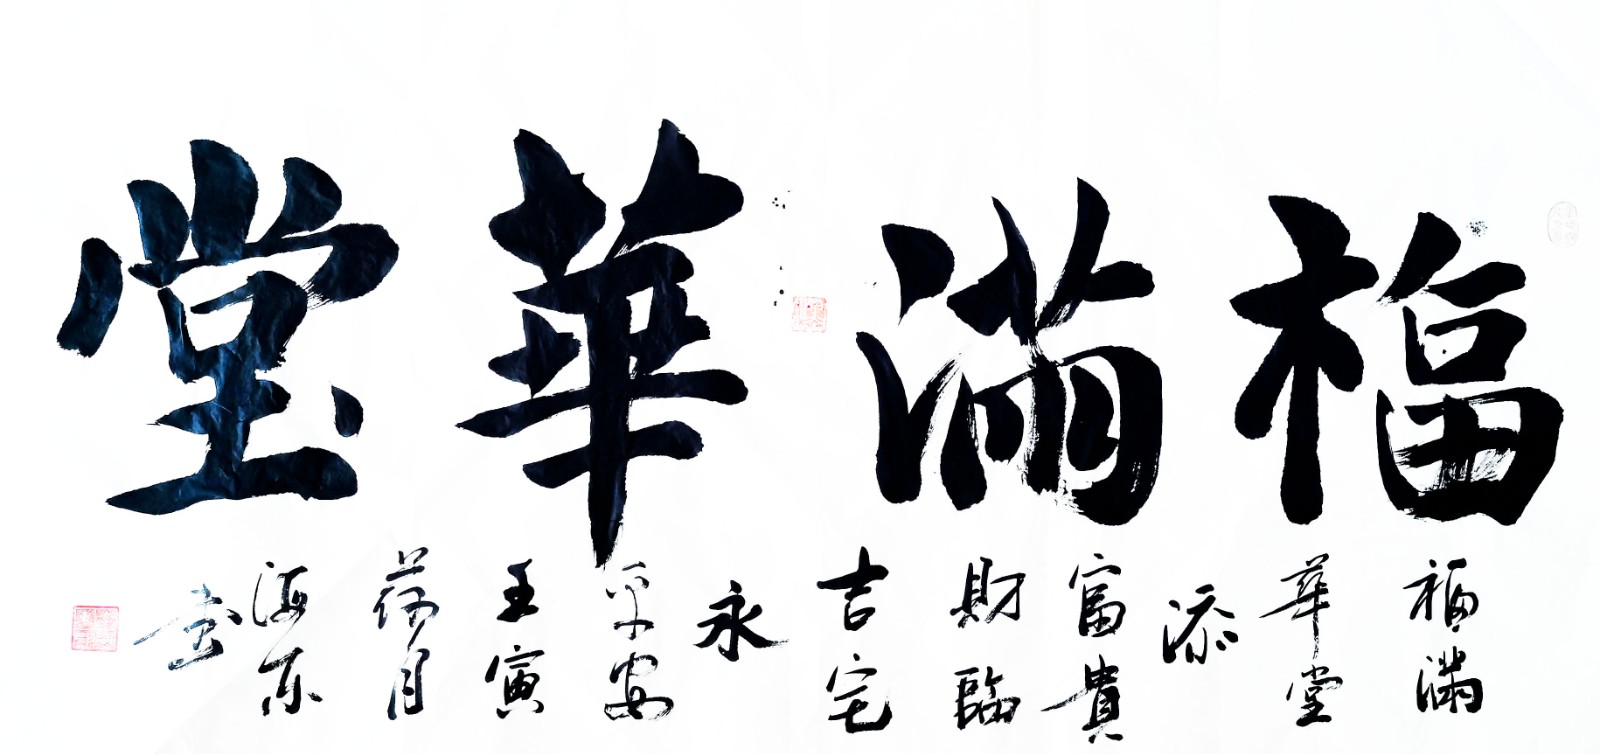 福滿華堂
福滿
華堂
添
富貴
財臨
吉宅
永
平安
壬寅
荷月
海東
書